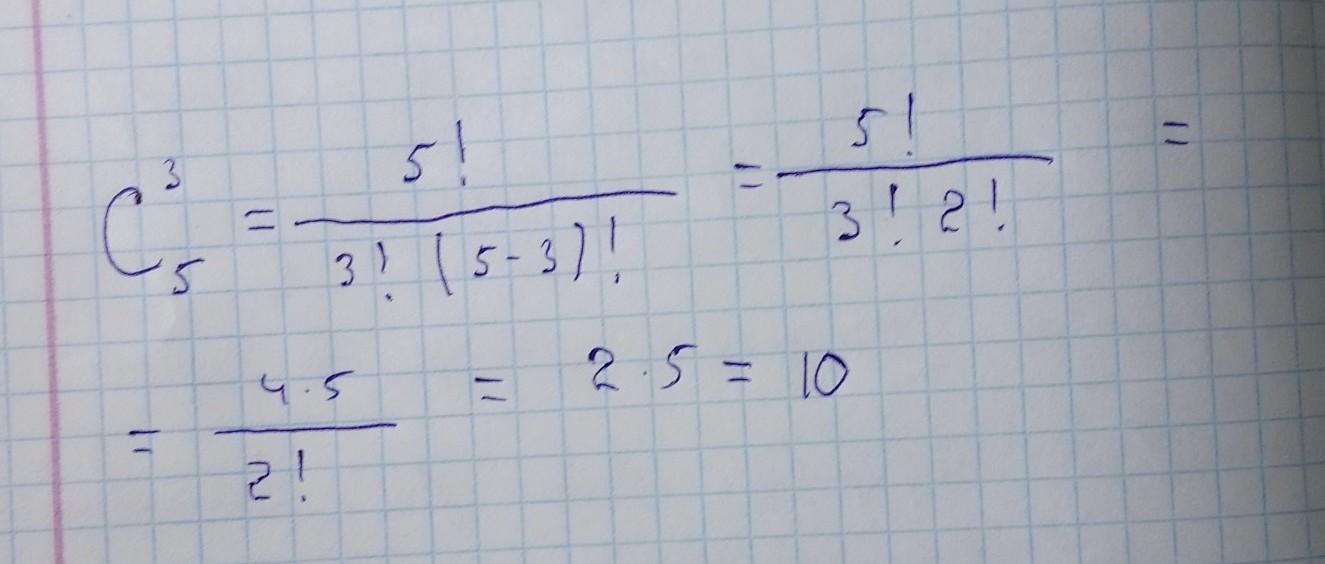 C₅³ = 5! / 3! (5-3)! = 5! / 3! 2! =
= 4·5 / 2! = 2·5 = 10